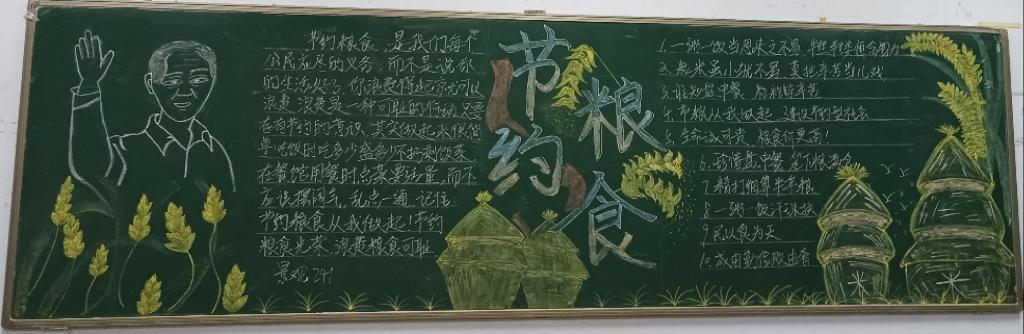 节约粮食,是我们每个
公民应尽的义务,而不是说你
的生活好了,你浪费得起就可以
浪费,浪费是一种可耻的行动,只要
存有节约的意识,其实做起来很简
单,吃饭时吃多少盛多少不扔剩饭菜
在餐馆用餐时点菜要适量,而不
应该摆阔气,乱点一通,记住:
节约粮食从我做起!节约
粮食光荣,浪费粮食可耻
景观241
节约
粮食
1.一粥一饭当思来之不易,半丝半缕恒念物力
2.粒米虽小
3.谁知盘中餐,粒粒皆辛苦
4.节粮从我做起,建设节约型社会
5.生命诚可贵,粮食价更高!
6.
7.精打细算半年粮
8.一粥一饭汗珠换
9.民以食为天
10.成由勤俭败由奢